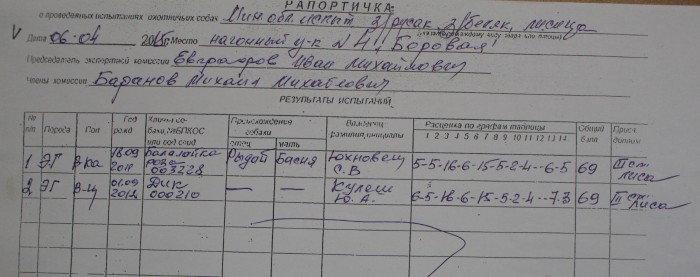 РАПОРТИЧКА
о проведенных испытаниях охотничьих собак Мин.обл. испыт. з/русак, з/беляк, лисица
Дата 06.04 2015г. Место нагонный у-к №4 "Боровая"
Председатель экспертной комиссии Евпрахоров Иван Михайлович
Члены комиссии Баранов Михаил Михайлович
РЕЗУЛЬТАТЫ ИСПЫТАНИЙ
№ п/п Порода Пол Год рожд Кличка собаки, №ВПКОС или род. свид Происхождение собаки отец мать Владелец фамилия, инициалы Расценка по графам таблицы 1 2 3 4 5 6 7 8 9 10 11 12 13 14 Общий балл Присв. диплом
1 ЭГ В-ка 18.09 2011 Балалайка 003228 Рыдай Басня Юхновец С.В. 5-5-16-6-15-5-2-4--6-5 69 III ст. лиса
2 ЭГ В-ц 01.09 2012 Дик 000210 — — Кулеш Ю.А. 6-5-16-6-15-5-2-4--7-3 69 III ст. лиса